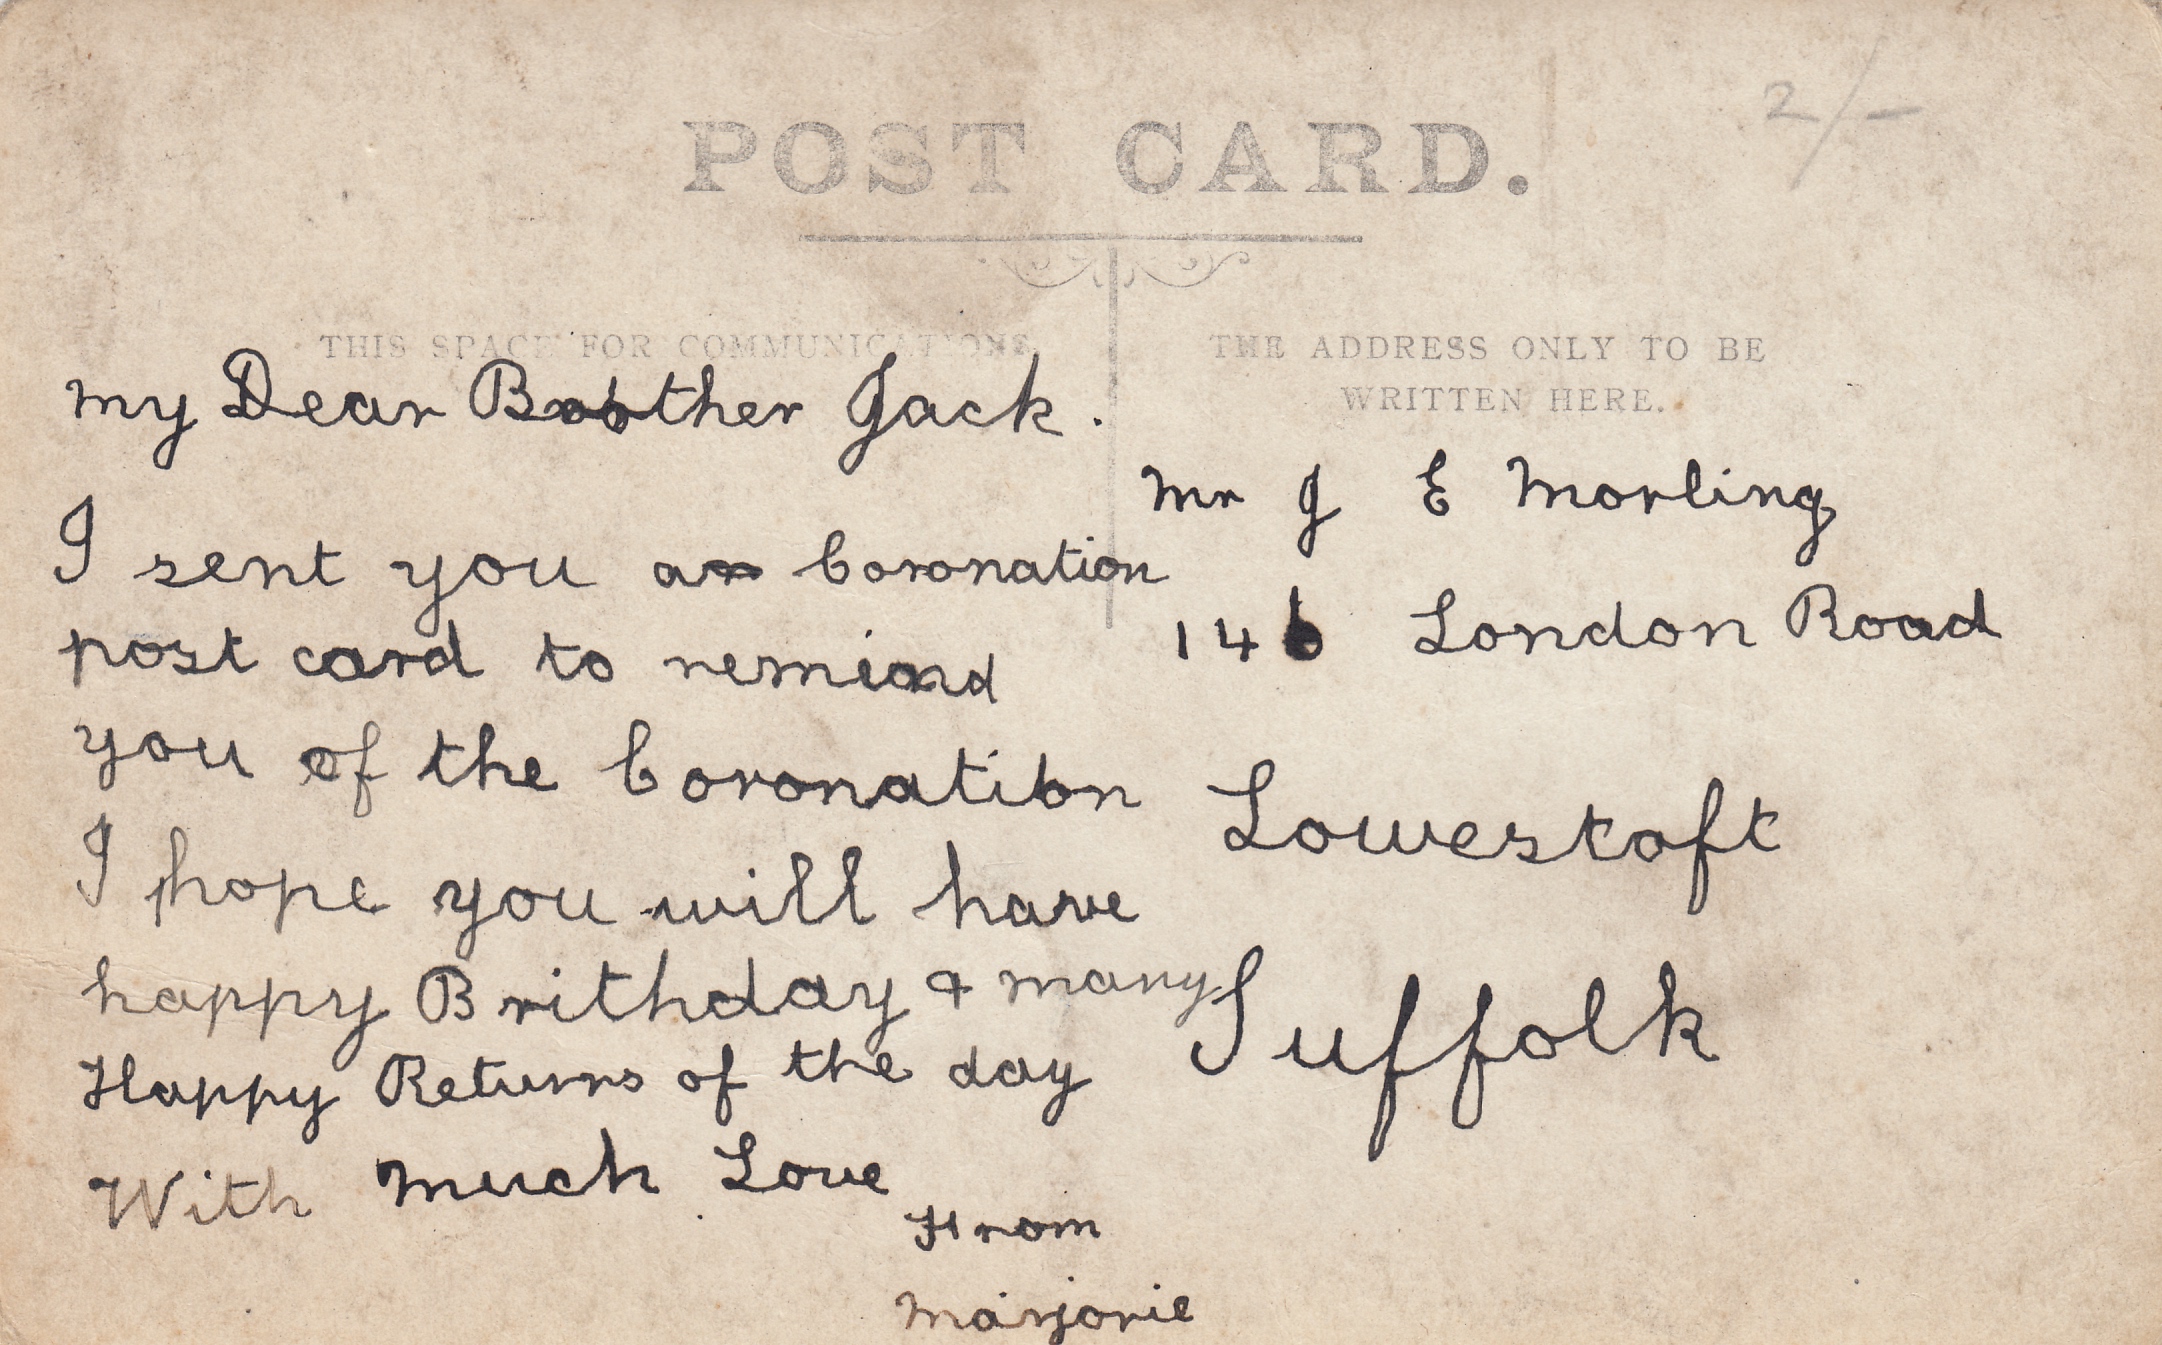 POST CARD.
2/-
THIS SPACE FOR COMMUNICATIONS
THE ADDRESS ONLY TO BE
WRITTEN HERE.
My Dear Brother Jack.
I sent you a Coronation
post card to remind
you of the Coronation
I hope you will have
happy Brithday & many
Happy Returns of the day
With much Love
From
Marjorie
Mr J E Morling
146 London Road
Lowestoft
Suffolk